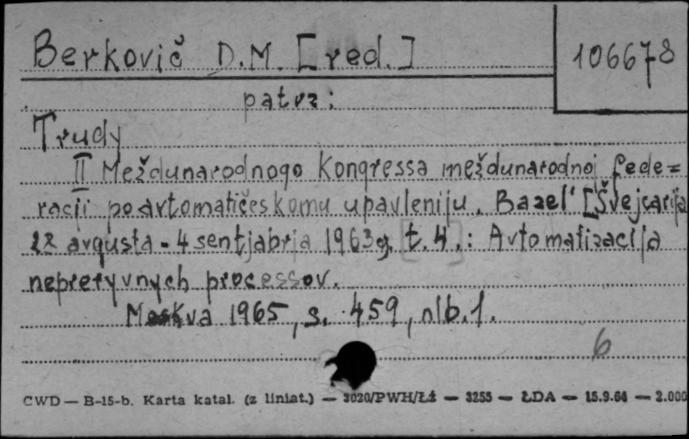 Berkovič D.M. [red.]
106678
patrz:
Trudy
II Meždunarodnogo Kongressa meždunarodnoj fede=
racji po avtomatičeskomu upavleniju. Bazel' [Švejcarija
22 avgusta - 4 sentjabrja 1963 g. [t. 4.]: Avtomatizacija
nepreryvnych processov.
Moskva 1965, s. 459, nlb. 1.
6
CWD — B-15-b. Karta katal. (z liniat.) — 3020/PWH/Łź — 3255 — ŁDA — 15.9.64 — 2.000